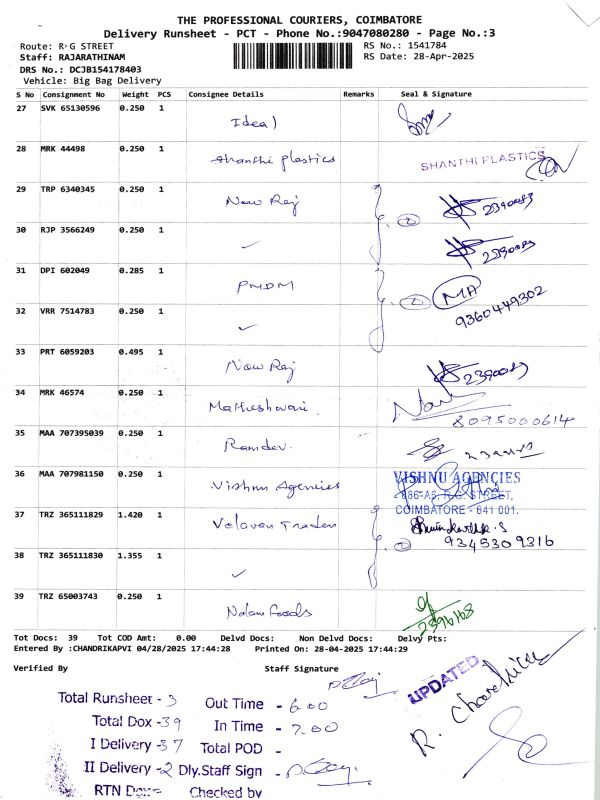 THE PROFESSIONAL COURIERS, COIMBATORE
Delivery Runsheet - PCT - Phone No.:9047080280 - Page No.:3
Route: R G STREET
RS No.: 1541784
Staff: RAJARATHINAM
RS Date: 28-Apr-2025
DRS No.: DCJB154178403
Vehicle: Big Bag Delivery
S No Consignment No Weight PCS Consignee Details Remarks Seal & Signature
27 SVK 65130596 0.250 1 Ideal
28 MRK 44498 0.250 1 Shanthi plastics SHANTHI PLASTICS
29 TRP 6340345 0.250 1 Naw Raj 2 2390083
30 RJP 3566249 0.250 1 ✓
31 DPI 602049 0.285 1 PMDM 2 MA 9360449302
32 VRR 7514783 0.250 1 ✓
33 PRT 6059203 0.495 1 Naw Raj
34 MRK 46574 0.250 1 Matheshwari 8095000614
35 MAA 707395039 0.250 1 Ramdev
36 MAA 707981150 0.250 1 Vishnu Agencies VISHNU AGENCIES
886-A6, R.G. STREET,
COIMBATORE - 641 001.
37 TRZ 365111829 1.420 1 Velavan Traders 2 9345309316
38 TRZ 365111830 1.355 1 ✓
39 TRZ 65003743 0.250 1 2396168
Tot Docs: 39 Tot COD Amt: 0.00 Delvd Docs: Non Delvd Docs: Delvy Pts:
Entered By :CHANDRIKAPVI 04/28/2025 17:44:28 Printed On: 28-04-2025 17:44:29
Verified By Staff Signature
UPDATED
Total Runsheet - 3 Out Time - 6.00
Total Dox - 39 In Time - 7.00
I Delivery - 37 Total POD -
II Delivery - 2 Dly.Staff Sign -
RTN Dox - Checked by